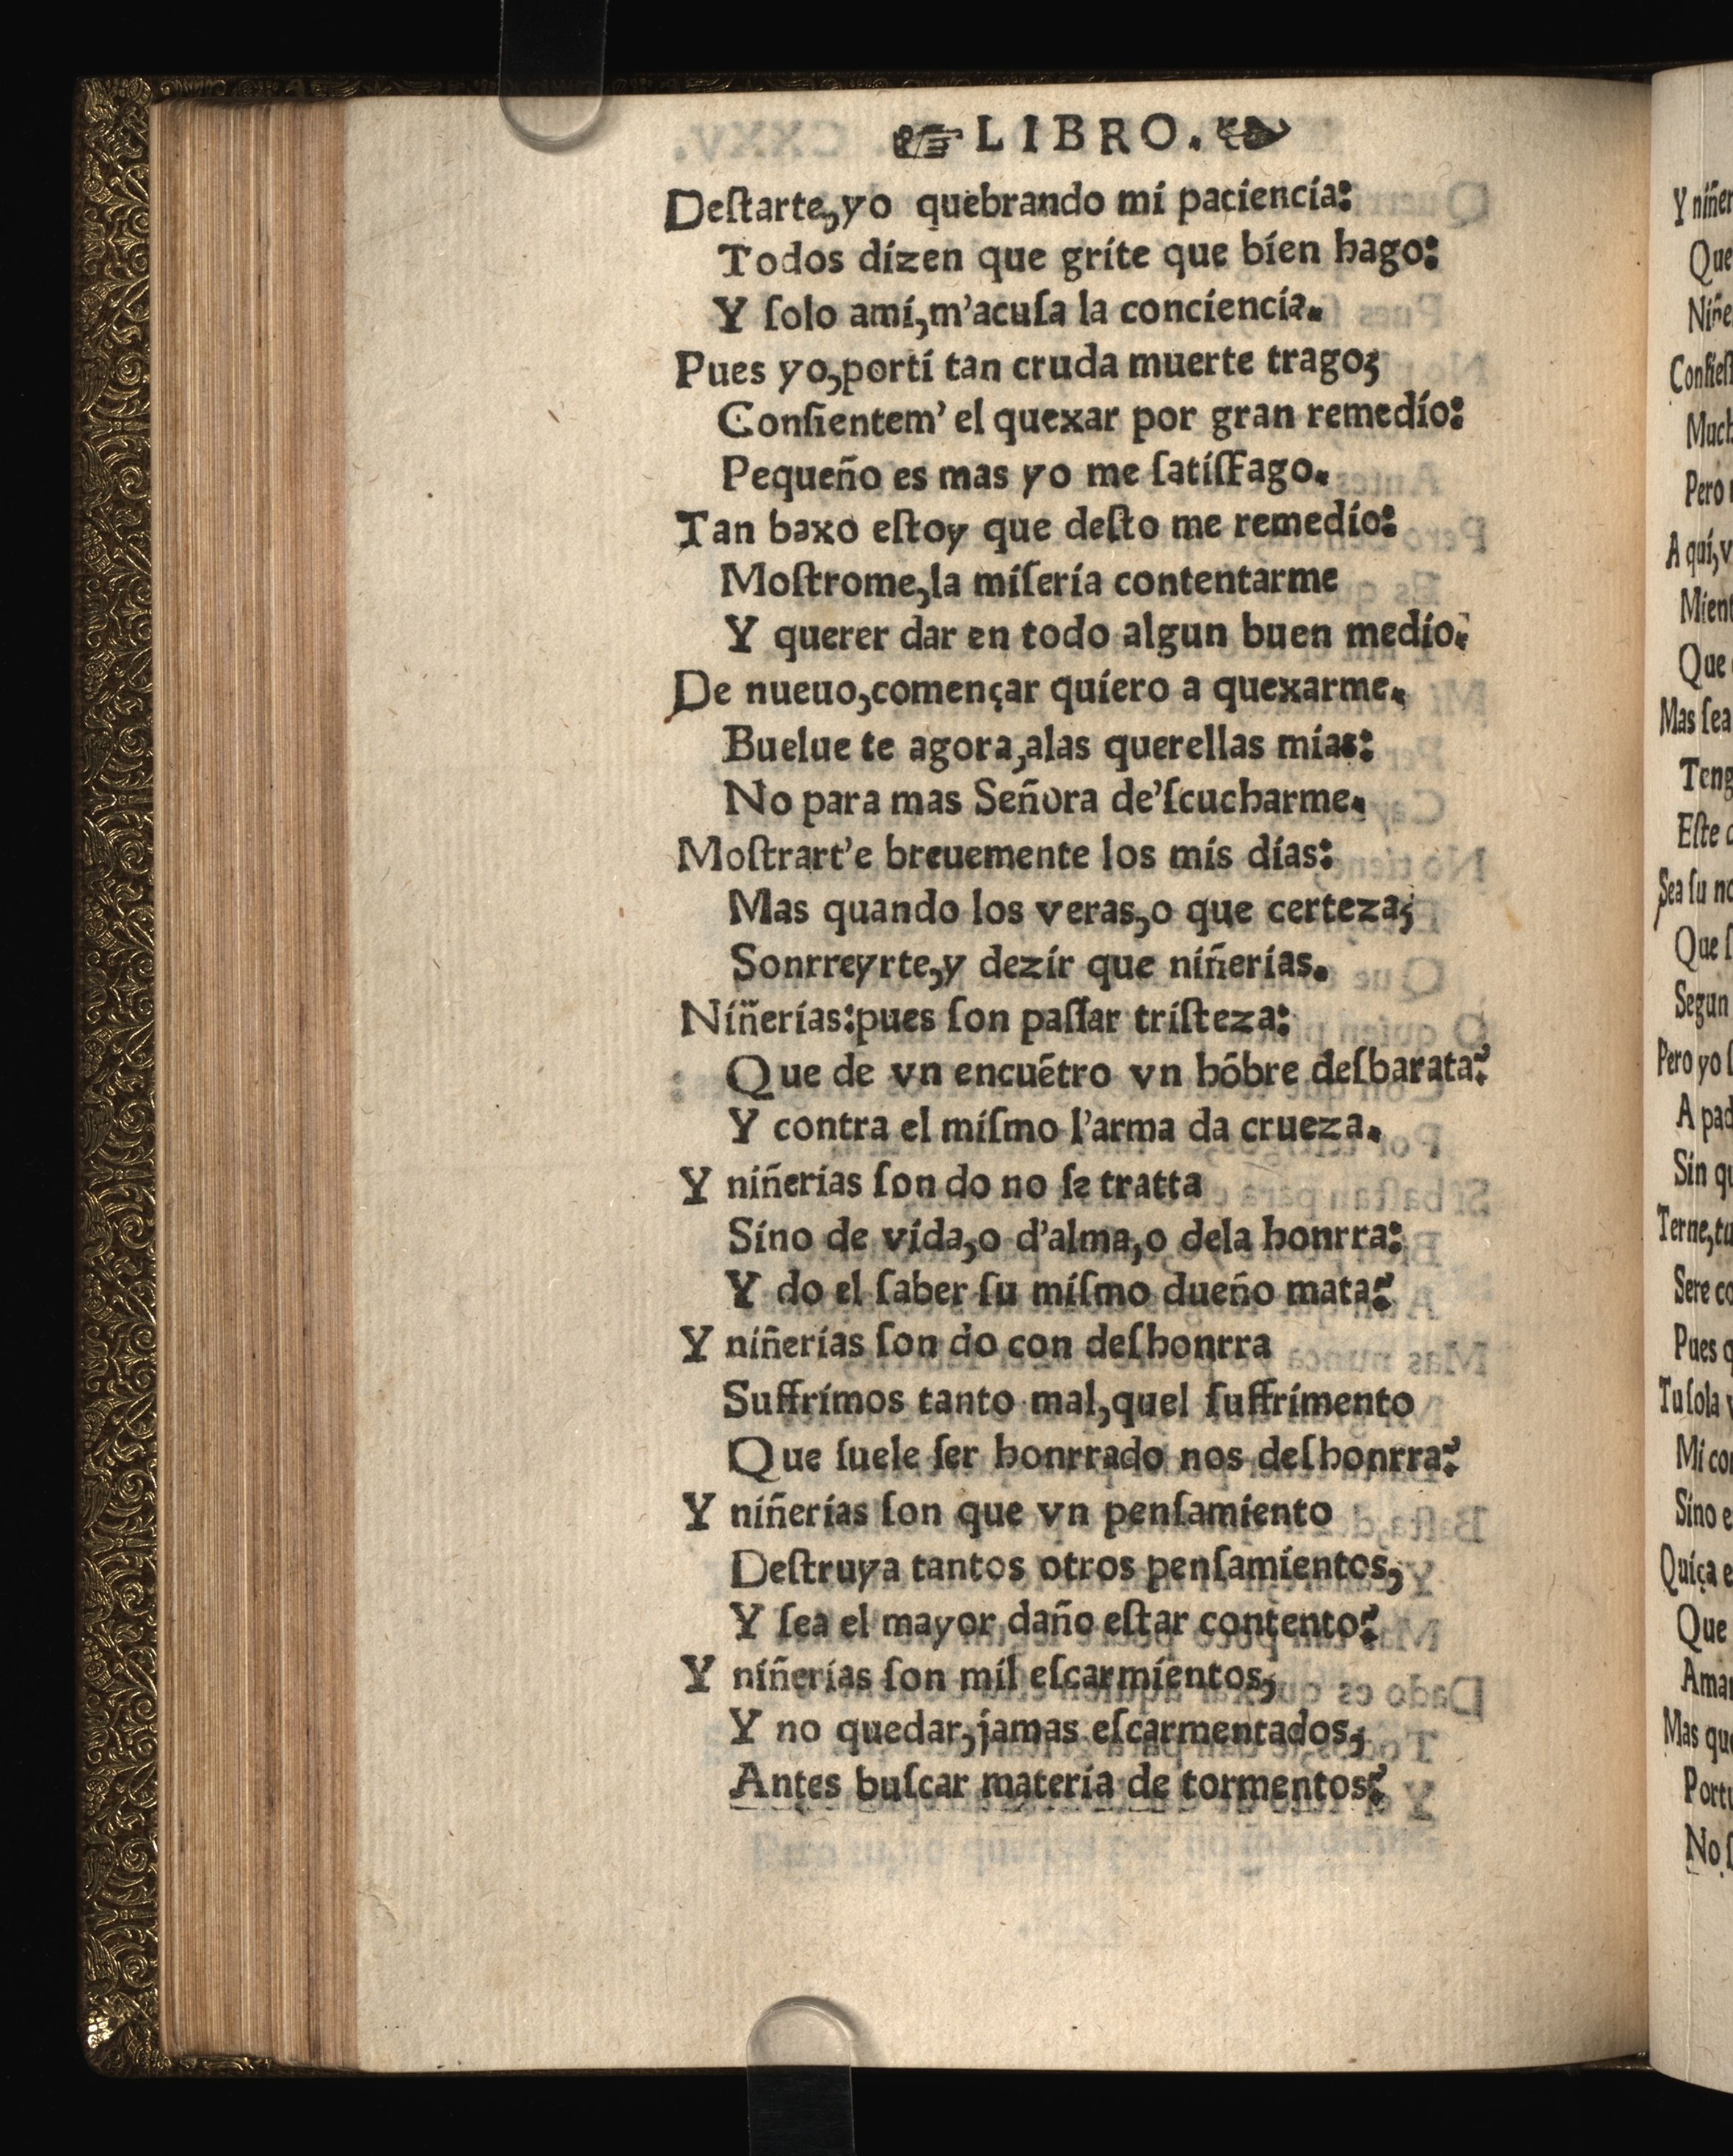 ☞ LIBRO. ❧
Deſtarte,yo quebrando mi paciencia:
Todos dizen que grite que bien hago:
Y ſolo ami,m'acuſa la conciencia.
Pues yo,porti tan cruda muerte trago;
Conſientem' el quexar por gran remedio:
Pequeño es mas yo me ſatiſfago.
Tan baxo eſtoy que deſto me remedio:
Moſtrome,la miſeria contentarme
Y querer dar en todo algun buen medio.
De nueuo,començar quiero a quexarme.
Buelue te agora,alas querellas mias:
No para mas Señora de'ſcucharme.
Moſtrart'e breuemente los mis dias:
Mas quando los veras,o que certeza;
Sonrreyrte,y dezir que niñerias.
Niñerias:pues ſon paſſar triſteza:
Que de vn encuẽtro vn hõbre deſbarata?
Y contra el miſmo l'arma da crueza.
Y niñerias ſon do no ſe tratta
Sino de vida,o d'alma,o dela honrra:
Y do el ſaber ſu miſmo dueño mata?
Y niñerias ſon do con deſhonrra
Suffrimos tanto mal,quel ſuffrimento
Que ſuele ſer honrrado nos deſhonrra?
Y niñerias ſon que vn penſamiento
Deſtruya tantos otros penſamientos,
Y ſea el mayor daño eſtar contento?
Y niñerias ſon mil eſcarmientos,
Y no quedar,jamas eſcarmentados,
Antes buſcar materia de tormentos?
Y niñer
Que
Niñe
Confieſ
Much
Pero
A qui,v
Mient
Que
Mas ſea
Teng
Eſte
Sea ſu no
Que ſ
Segun
Pero yo ſ
A pad
Sin qu
Terne,tu
Sere co
Pues q
Tu ſola v
Mi cor
Sino e
Quiça e
Que
Amar
Mas que
Portu
No ſ